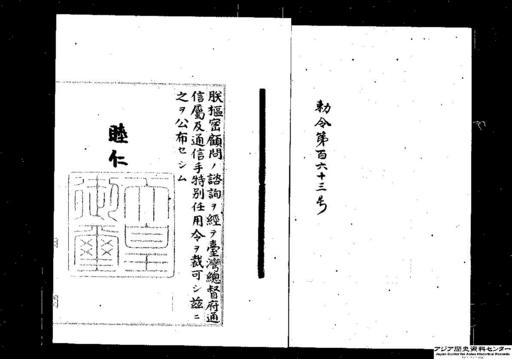 勅令第百六十三号
朕樞密顧問ノ諮詢ヲ經テ臺灣總督府通
信屬及通信手特別任用令ヲ裁可シ茲ニ
之ヲ公布セシム
睦仁
天皇
御璽
アジア歴史資料センター
Japan Center for Asian Historical Records